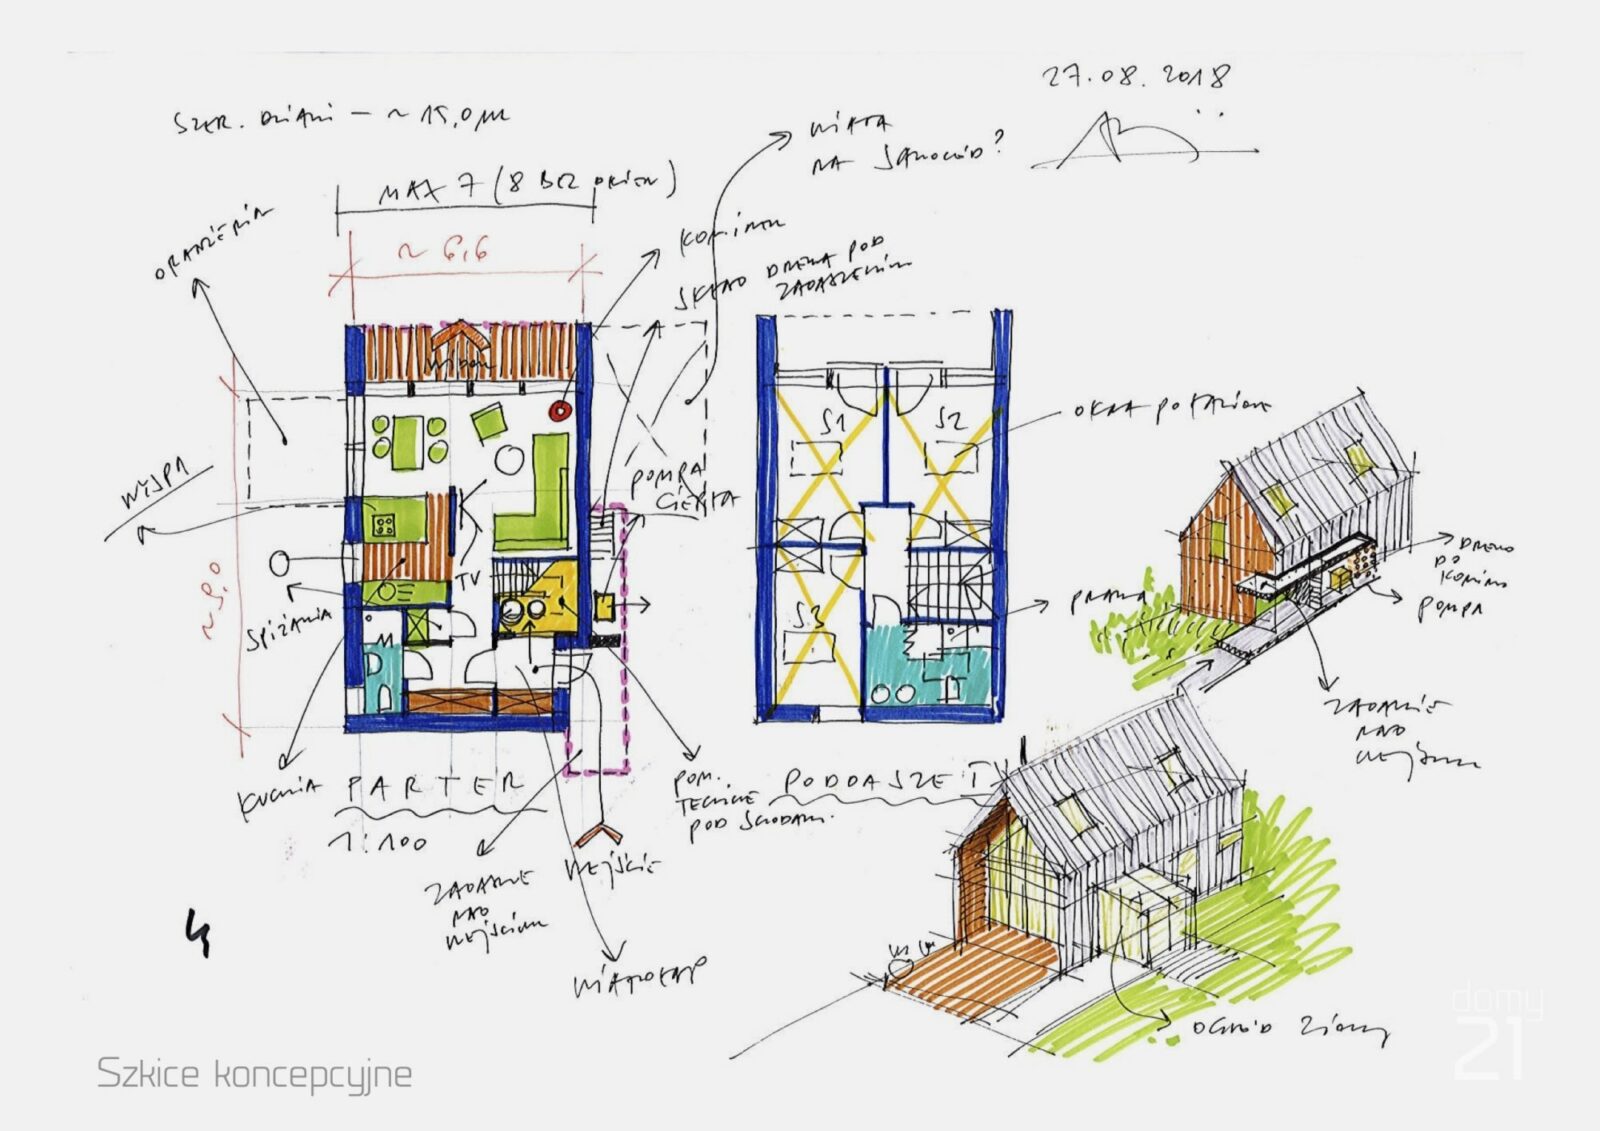 27.08.2018
SZER. DZIAŁKI – ~ 15,0 m
WIATA
NA SAMOCHÓD?
MAX 7 (8 BEZ OKIEN)
ORANŻERIA
~ 6,6
KOMINEK
SKŁAD DREWNA POD
ZADASZENIEM
S1
S2
OKNA POŁACIOWE
WYSPA
POMPA
CIEPŁA
TV
~ 9,0
SPIŻARNIA
S3
PRALKA
DREWNO
DO
KOMINKA
POMPA
ZADASZENIE
NAD
WEJŚCIEM
KUCHNIA
PARTER
1:100
POM.
TECHNICZNE
POD SCHODAMI.
PODDASZE I
ZADASZENIE
NAD
WEJŚCIEM
WEJŚCIE
WIATROŁAP
OGRÓD ZIMOWY
domy
21
Szkice koncepcyjne